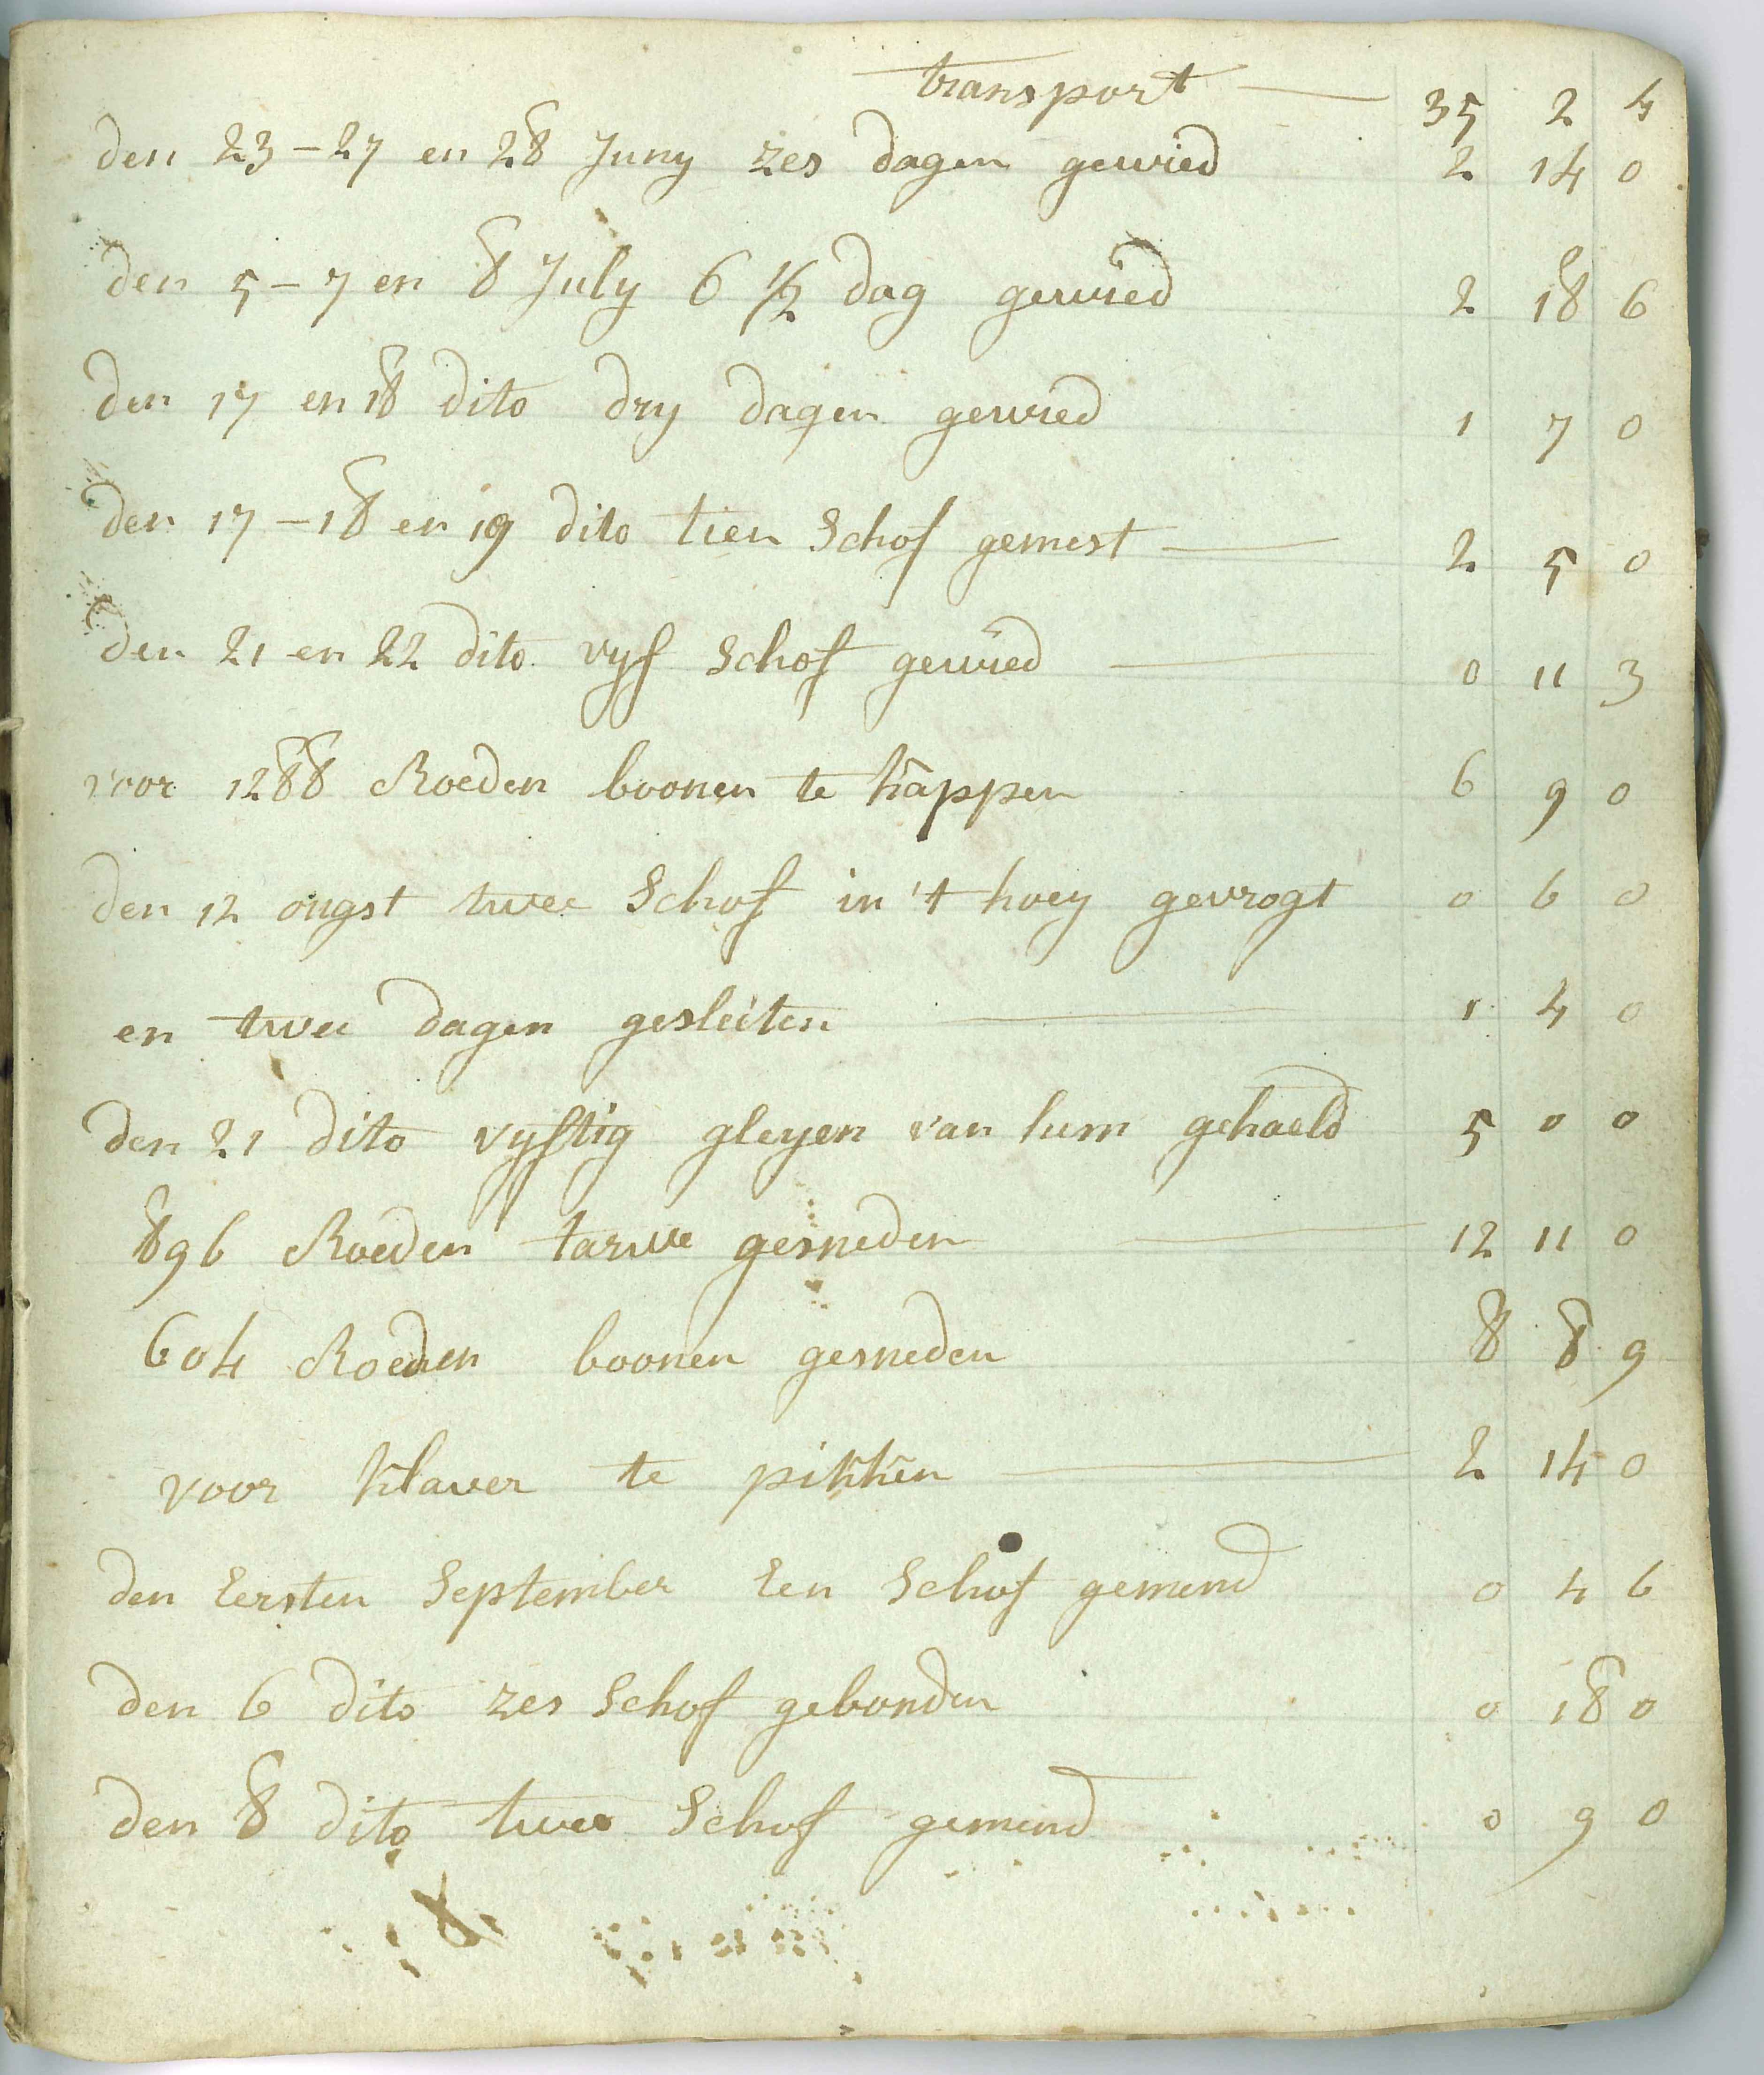 transport — 35 2 4
den 23 - 27 en 28 Juny zes dagen gewied 2 14 0
den 5 - 7 en 8 July 6 1/2 dag gewied 2 18 6
den 17 en 18 dito dry dagen gewied 1 7 0
den 17 - 18 en 19 dito tien Schof gemest — 2 5 0
den 21 en 22 dito vyf schof gewied — 0 11 3
voor 1288 Roeden boonen te kappen 6 9 0
den 12 ougst twee Schof in 't hoey gevrogt 0 6 0
en twee dagen gesleiten — 1 4 0
den 21 dito vyftig gleyen van hem gehaeld 5 0 0
896 Roeden tarwe gesneden — 12 11 0
604 Roeden boonen gesneden 8 8 9
voor klaver te pikken — 2 14 0
den Eersten September Een Schof gemend 0 4 6
den 6 dito zes Schof gebonden 0 18 0
den 8 dito twee Schof gemend 0 9 0